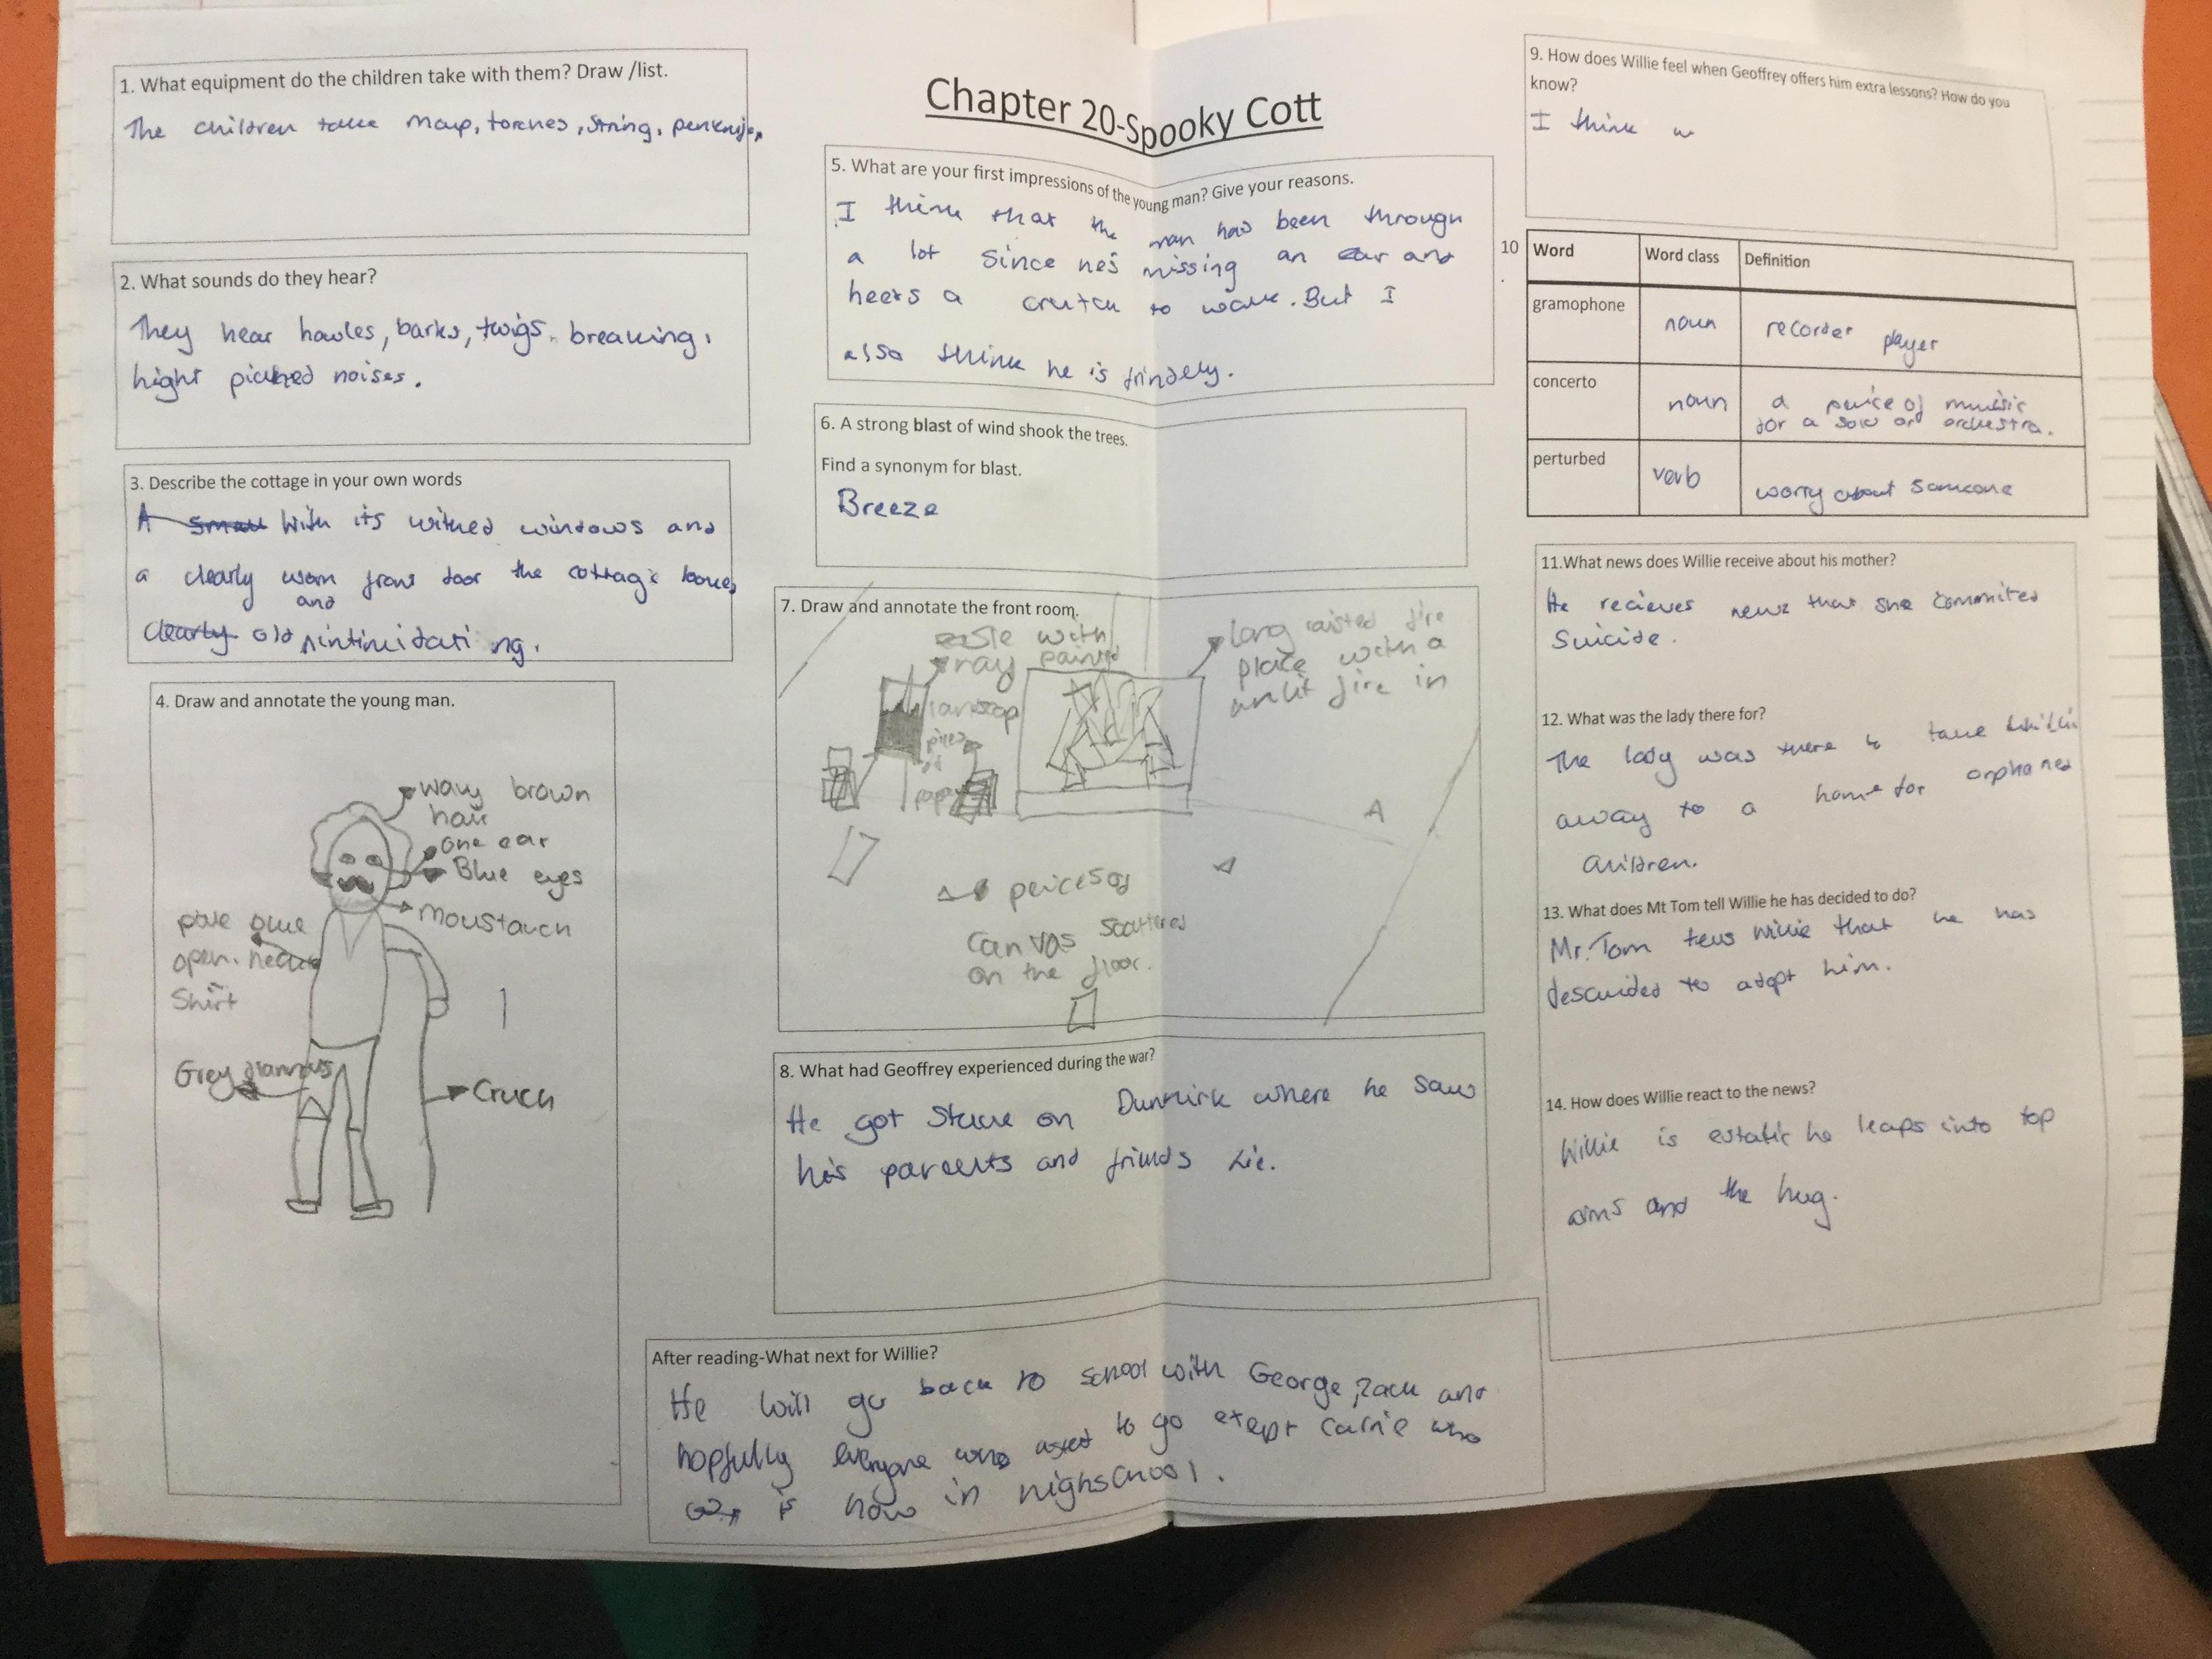 1. What equipment do the children take with them? Draw /list.
The children take map, torches, string, penknife,
2. What sounds do they hear?
They hear howles, barks, twigs breaking,
hight picthed noises.
3. Describe the cottage in your own words
A small With its withed windows and
a clearly worn front door the cottage looked
and
clearly old intimidating.
4. Draw and annotate the young man.
wavy brown
hair
one ear
Blue eyes
moustauch
pale blue
open.neck
Shirt
Grey
Cruch
Chapter 20-Spooky Cott
5. What are your first impressions of the young man? Give your reasons.
I think that the man has been through
a lot since he's missing an ear and
needs a crutch to walk. But I
also think he is frindely.
6. A strong blast of wind shook the trees.
Find a synonym for blast.
Breeze
7. Draw and annotate the front room.
easle with
painted
landscap
piles
of
paper
long raisted fire
place with a
unlit fire in
A
peices of
canvas scattered
on the floor.
8. What had Geoffrey experienced during the war?
He got stuck on Dunkirk where he saw
his parents and friends die.
After reading-What next for Willie?
He will go back to school with George, Zach and
hopfully everyone who asked to go exept Carrie who
is now in highschool.
9. How does Willie feel when Geoffrey offers him extra lessons? How do you
know?
I think w
10 Word Word class Definition
.
gramophone noun recorder player
concerto noun a peice of music
for a solo or orchestra.
perturbed verb worry about someone
11.What news does Willie receive about his mother?
He recieves news that she commited
suicide.
12. What was the lady there for?
The lady was there to take Willie
away to a home for orphaned
children.
13. What does Mt Tom tell Willie he has decided to do?
Mr. Tom tells Willie that he has
descided to adopt him.
14. How does Willie react to the news?
Willie is estatic he leaps into top
arms and the hug.